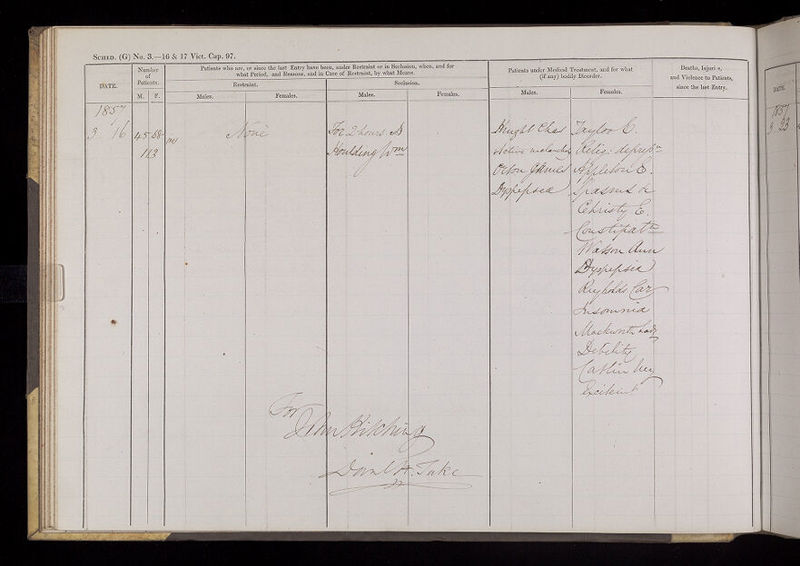 SCHED. (G) No. 3.—16 & 17 Vict. Cap. 97.
DATE.
Number of Patients.
M. F.
Patients who are, or since the last Entry have been, under Restraint or in Seclusion, when, and for
what Period, and Reasons, and in Case of Restraint, by what Means.
Restraint.
Seclusion.
Males.
Females.
Males.
Females.
Patients under Medical Treatment, and for what
(if any) bodily Disorder.
Males.
Females.
Deaths, Injuries,
and Violence to Patients,
since the last Entry.
1857
3 16
45 68
113
None
For 2 hours
Houlding Wm
Knight Chas
Active melancholy
Orton James
Dyspepsia
Taylor E.
Relig. depressn
Appleton E.
Spasms &c
Christy E.
Constipatn
Watson Ann
Dyspepsia
Reynolds Car
Insomnia
Mackworth Lady
Debility
Catlin
Excitemt
For
John Kitching
Danl H. Tuke
DATE.
1857
3 23